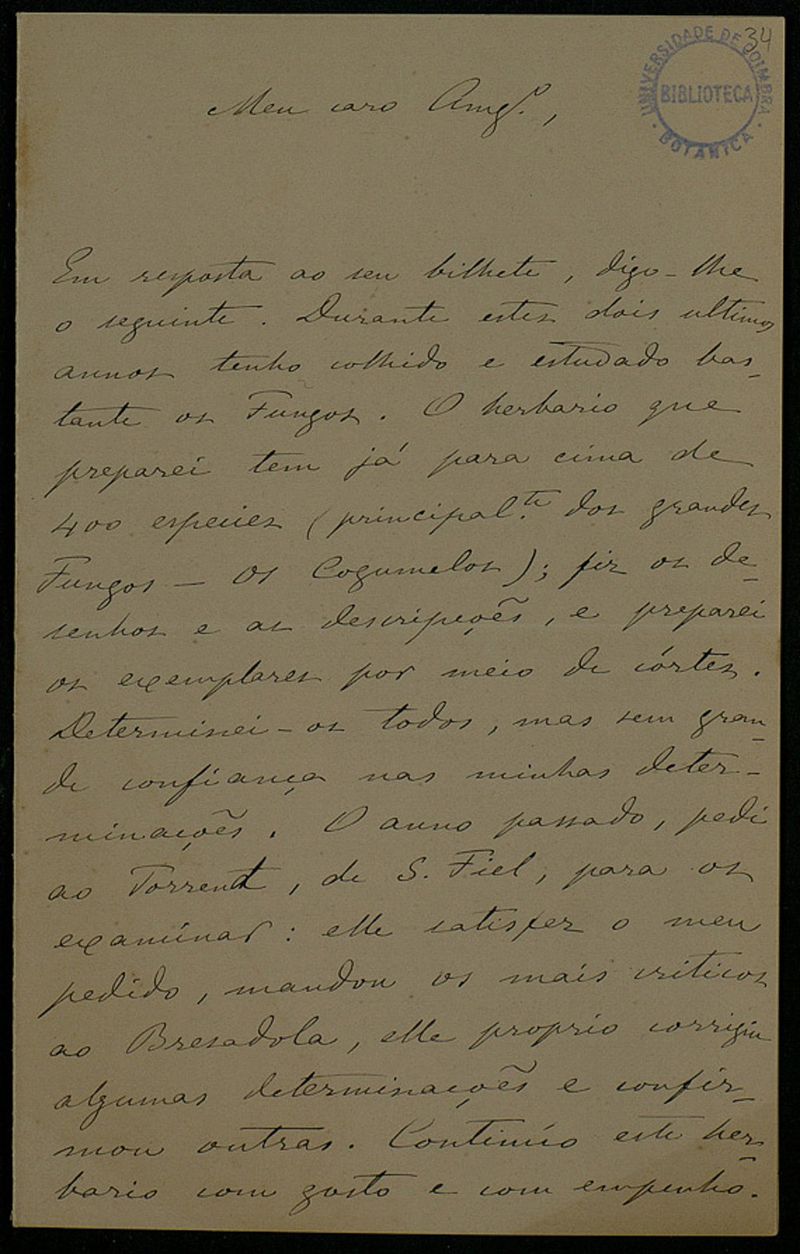 34
UNIVERSIDADE DE COIMBRA
BIBLIOTECA
BOTANICA
Meu caro Amg.º,
Em resposta ao seu bilhete, digo-lhe
o seguinte. Durante estes dois ultimos
annos tenho colhido e estudado bas-
tante os Fungos. O herbario que
preparei tem já para cima de
400 especies (principal.te dos grandes
Fungos — os Cogumelos); fiz os de-
senhos e as descripções, e preparei
os exemplares por meio de córtes.
Determinei-os todos, mas sem gran-
de confiança nas minhas deter-
minações. O anno passado, pedi
ao Torrend, de S. Fiel, para os
examinar: elle satisfez o meu
pedido, mandou os mais criticos
ao Bresadola, elle proprio corrigiu
algumas determinações e confir-
mou outras. Continúo este her-
bario com gosto e com empenho.